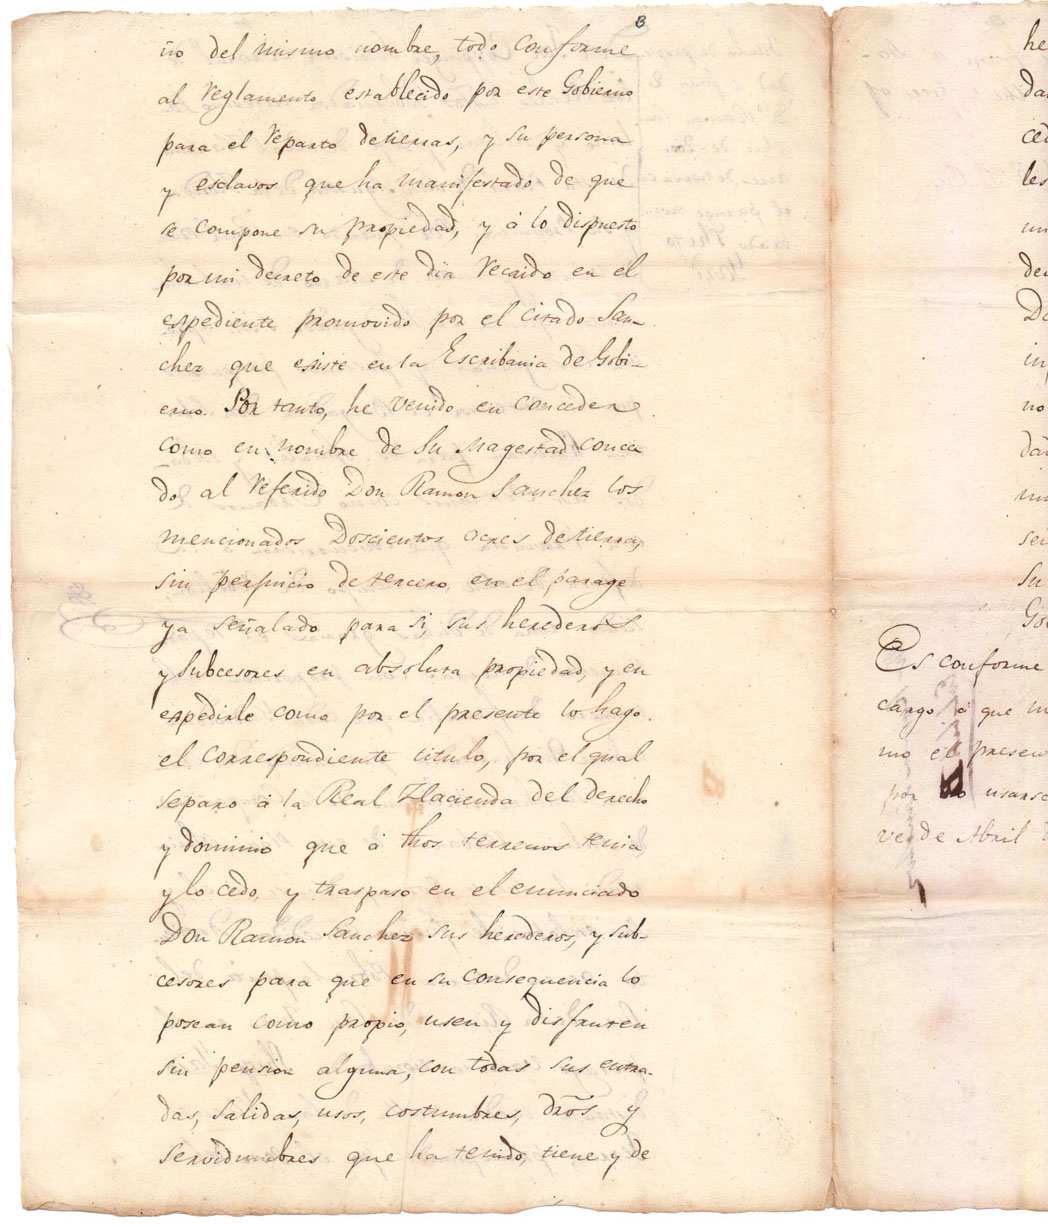 3
ño del mismo nombre, todo conforme
al reglamento establecido por este Gobierno
para el reparto de tierras, y su persona
y esclavos que ha manifestado de que
se compone su propiedad, y á lo dispuesto
por mi decreto de este dia recaido en el
espediente promovido por el citado San-
chez que esiste en la Escribania de Gobi-
erno. Por tanto, he venido en conceder
como en nombre de Su Magestad conce-
do al referido Don Ramon Sanchez los
mencionados Doscientos acres de tierra,
sin perjuicio de tercero, en el parage
ya señalado para si, sus herederos
y subcesores en absoluta propiedad, y en
espedirle como por el presente lo hago
el correspondiente titulo, por el qual
separo á la Real Hacienda del derecho
y dominio que á dhos terrenos tenia,
y lo cedo, y traspaso en el enunciado
Don Ramon Sanchez sus herederos, y sub-
cesores para que en su consequencia lo
posean como propio, usen y disfruten
sin pension alguna, con todas sus entra-
das, salidas, usos, costumbres, dros y
servidumbres que ha tenido, tiene y de
he
ced
les
de
in
no
Su
Go
Es conforme
cargo á que
mo el presen
por no usarse
ve de Abril